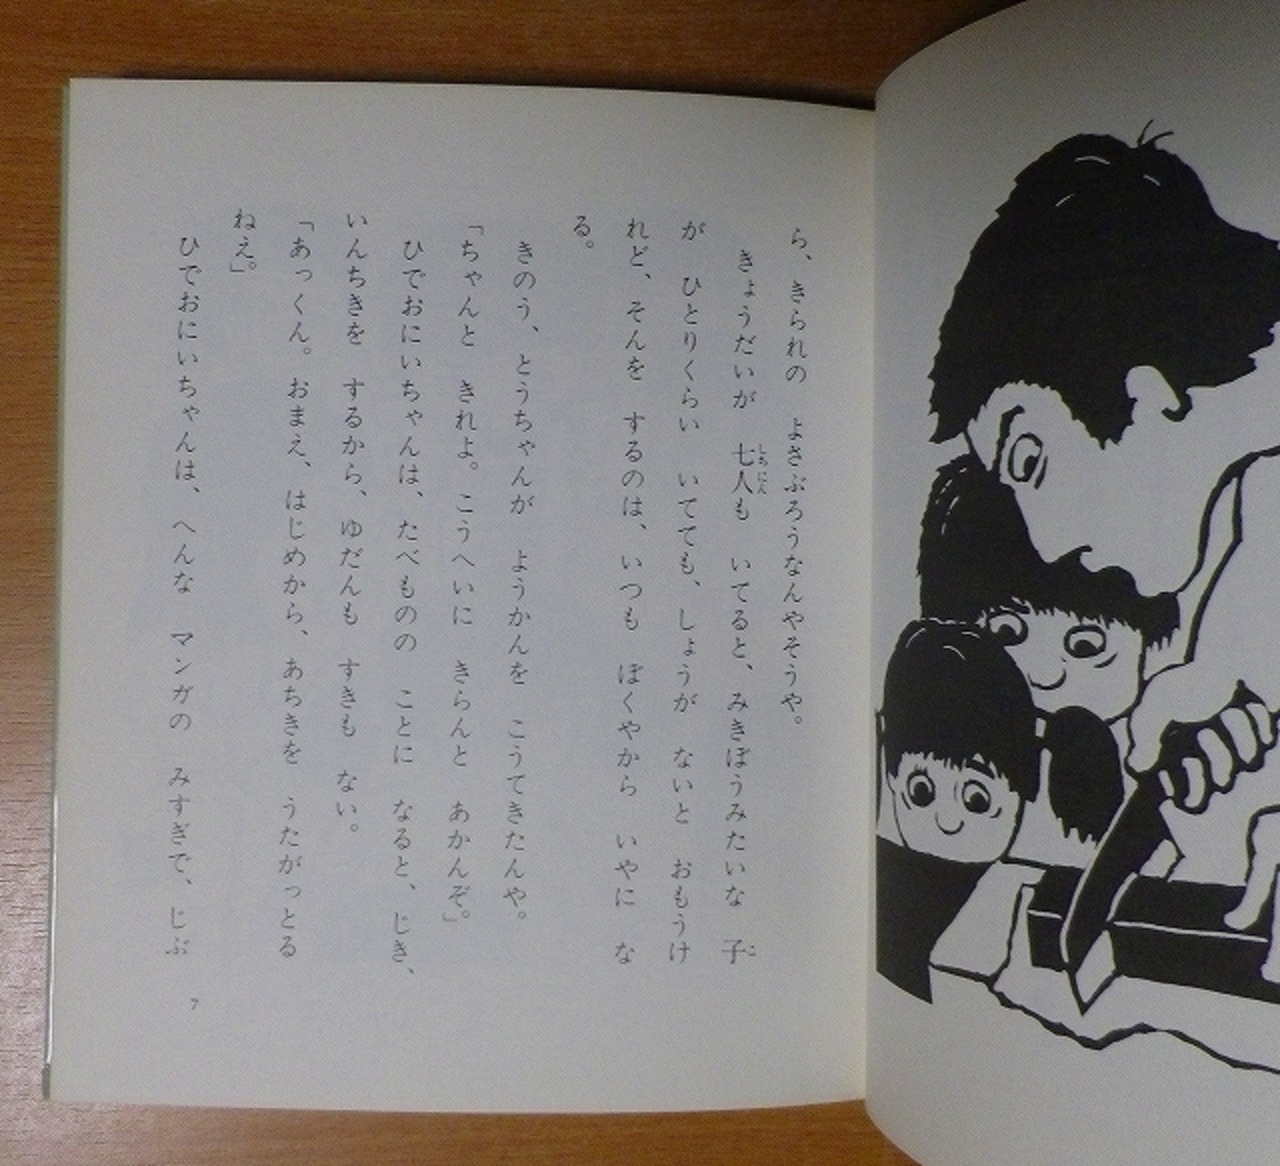 ら、きられの　よさぶろうなんやそうや。
きょうだいが　七人も　いてると、みきぼうみたいな　子
が　ひとりくらい　いてても、しょうが　ないと　おもうけ
れど、そんを　するのは、いつも　ぼくやから　いやに　な
る。
きのう、とうちゃんが　ようかんを　こうてきたんや。
「ちゃんと　きれよ。こうへいに　きらんと　あかんぞ」。
ひでおにいちゃんは、たべものの　ことに　なると、じき、
いんちきを　するから、ゆだんも　すきも　ない。
「あっくん。おまえ、はじめから、あちきを　うたがっとる
ねえ」。
ひでおにいちゃんは、へんな　マンガの　みすぎで、じぶ
7